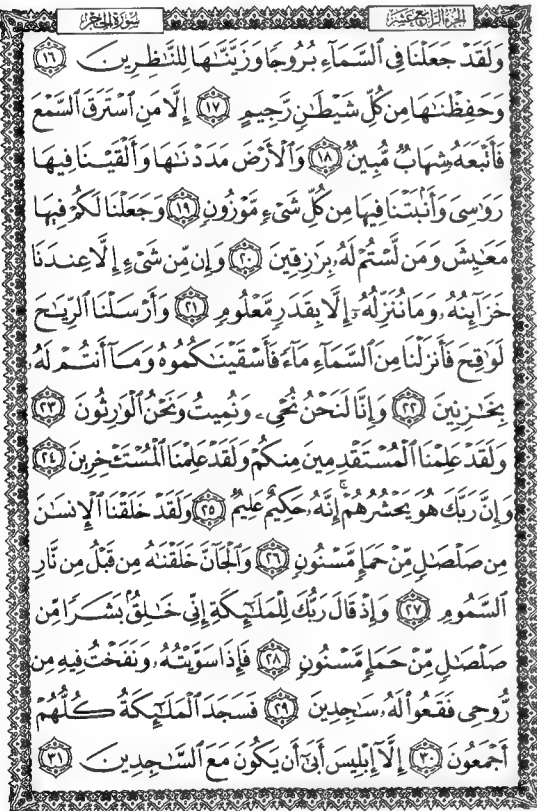 الجزء الرابع عشر
سورة الحجر
وَلَقَدْ جَعَلْنَا فِي ٱلسَّمَآءِ بُرُوجًا وَزَيَّنَّٰهَا لِلنَّٰظِرِينَ ١٦
وَحَفِظْنَٰهَا مِن كُلِّ شَيْطَٰنٍ رَّجِيمٍ ١٧ إِلَّا مَنِ ٱسْتَرَقَ ٱلسَّمْعَ
فَأَتْبَعَهُۥ شِهَابٌ مُّبِينٌ ١٨ وَٱلْأَرْضَ مَدَدْنَٰهَا وَأَلْقَيْنَا فِيهَا
رَوَٰسِىَ وَأَنۢبَتْنَا فِيهَا مِن كُلِّ شَىْءٍ مَّوْزُونٍ ١٩ وَجَعَلْنَا لَكُمْ فِيهَا
مَعَٰيِشَ وَمَن لَّسْتُمْ لَهُۥ بِرَٰزِقِينَ ٢٠ وَإِن مِّن شَىْءٍ إِلَّا عِندَنَا
خَزَآئِنُهُۥ وَمَا نُنَزِّلُهُۥٓ إِلَّا بِقَدَرٍ مَّعْلُومٍ ٢١ وَأَرْسَلْنَا ٱلرِّيَٰحَ
لَوَٰقِحَ فَأَنزَلْنَا مِنَ ٱلسَّمَآءِ مَآءً فَأَسْقَيْنَٰكُمُوهُ وَمَآ أَنتُمْ لَهُۥ
بِخَٰزِنِينَ ٢٢ وَإِنَّا لَنَحْنُ نُحْىِۦ وَنُمِيتُ وَنَحْنُ ٱلْوَٰرِثُونَ ٢٣
وَلَقَدْ عَلِمْنَا ٱلْمُسْتَقْدِمِينَ مِنكُمْ وَلَقَدْ عَلِمْنَا ٱلْمُسْتَـْٔخِرِينَ ٢٤
وَإِنَّ رَبَّكَ هُوَ يَحْشُرُهُمْ ۚ إِنَّهُۥ حَكِيمٌ عَلِيمٌ ٢٥ وَلَقَدْ خَلَقْنَا ٱلْإِنسَٰنَ
مِن صَلْصَٰلٍ مِّنْ حَمَإٍ مَّسْنُونٍ ٢٦ وَٱلْجَآنَّ خَلَقْنَٰهُ مِن قَبْلُ مِن نَّارِ
ٱلسَّمُومِ ٢٧ وَإِذْ قَالَ رَبُّكَ لِلْمَلَٰٓئِكَةِ إِنِّى خَٰلِقٌۢ بَشَرًا مِّن
صَلْصَٰلٍ مِّنْ حَمَإٍ مَّسْنُونٍ ٢٨ فَإِذَا سَوَّيْتُهُۥ وَنَفَخْتُ فِيهِ مِن
رُّوحِى فَقَعُوا۟ لَهُۥ سَٰجِدِينَ ٢٩ فَسَجَدَ ٱلْمَلَٰٓئِكَةُ كُلُّهُمْ
أَجْمَعُونَ ٣٠ إِلَّآ إِبْلِيسَ أَبَىٰٓ أَن يَكُونَ مَعَ ٱلسَّٰجِدِينَ ٣١